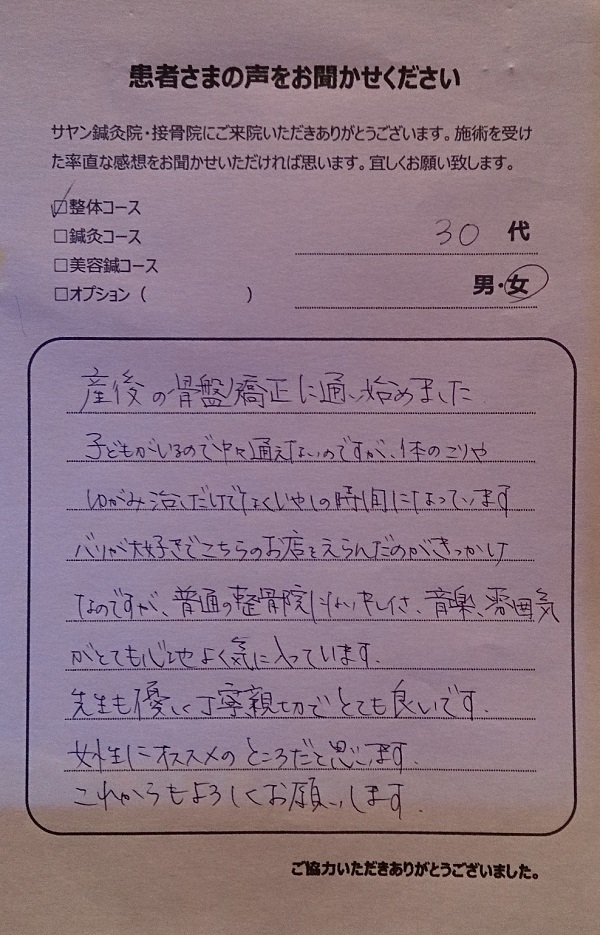 患者さまの声をお聞かせください
サヤン鍼灸院・接骨院にご来院いただきありがとうございます。施術を受け
た率直な感想をお聞かせいただければ思います。宜しくお願い致します。
☑整体コース
□鍼灸コース
□美容鍼コース
□オプション（　　　　　　　）
30 代
男・女
産後の骨盤矯正に通い始めました
子どもがいるので中々通えないのですが、体のこりや
ゆがみ治しだけでなくいやしの時間になっています
バリが大好きでこちらのお店をえらんだのがきっかけ
なのですが、普通の整骨院にない 、音楽、雰囲気
がとても心地よく気に入っています.
先生も優しく丁寧親切でとても良いです.
女性にオススメのところだと思います.
これからもよろしくお願いします.
ご協力いただきありがとうございました。